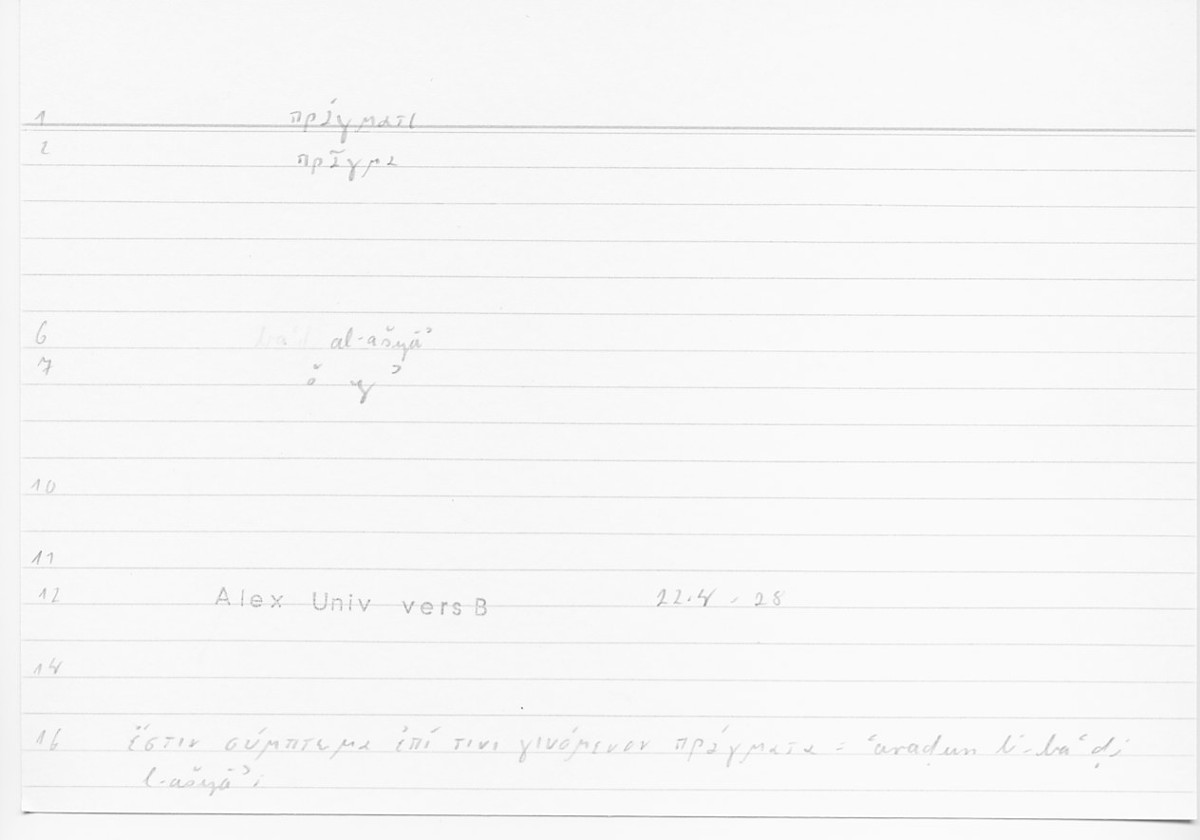 1 πράγματι
2 πρᾶγμα
6 al-ašyāʾ
7 š y ʾ
10
11
12 Alex Univ vers B 22.4 . 28
14
16 ἔστιν σύμπτωμα ἐπί τινι γινόμενον πράγματα = ʿaraḍun li-baʿḍi
l-ašyāʾi